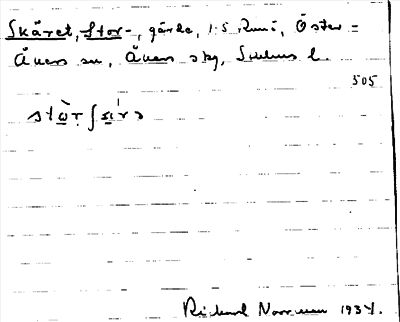 Skäret, Stor-, gärde, 1:5 Runö, Öster-
Åkers sn, Åkers skg, Sthlms l.
505
Rickard Norrman 1934.